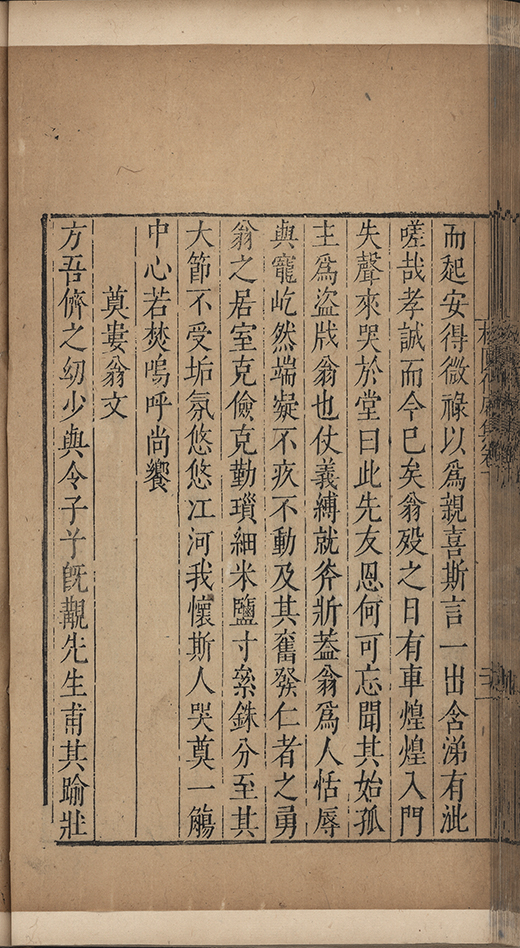 而起安得微祿以爲親喜斯言一出含涕有泚
嗟哉孝誠而今已矣翁歿之日有車煌煌入門
失聲來哭於堂曰此先友恩何可忘聞其始孤
主爲盜戕翁也仗義縛就斧斨蓋翁爲人恬辱
與寵屹然端凝不疚不動及其奮發仁者之勇
翁之居室克儉克勤瑣細米鹽寸絫銖分至其
大節不受垢氛悠悠江河我懷斯人哭奠一觴
中心若焚嗚呼尚饗
奠婁翁文
方吾儕之幼少與令子兮旣覯先生甫其踰壯